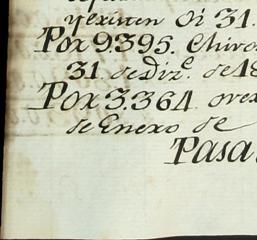 y existen Oi 31.
Por 9395. Chivos
31 de Diz.e de 18
Por 3.364 ovex
de Enero de
Pasa